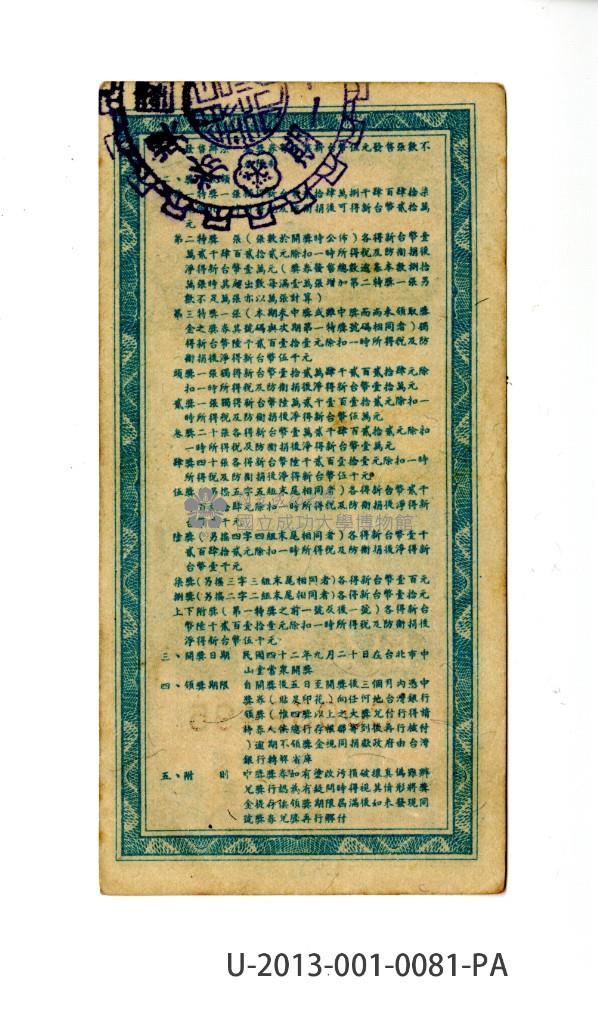 發售張數不
第二特獎 張(張數於開獎時公佈)各得新台幣壹
萬貳千肆百貳拾貳元除扣一時所得稅及防衛捐後
淨得新台幣壹萬元(獎券發售總數逾基本數捌拾
萬張時其超出數每滿壹萬張增加第二特獎一張另
數不足萬張亦以萬張計算)
第三特獎一張(本期未中獎或雖中獎而尚未領取獎
金之獎券其號碼與次期第一特獎號碼相同者)獨
得新台幣陸千貳百壹拾壹元除扣一時所得稅及防
衛捐後淨得新台幣伍千元
頭獎一張獨得新台幣壹拾貳萬肆千貳百貳拾肆元除
扣一時所得稅及防衛捐後淨得新台幣壹拾萬元
貳獎一張獨得新台幣陸萬貳千壹百壹拾貳元除扣一
時所得稅及防衛捐後淨得新台幣伍萬元
叁獎二十張各得新台幣壹萬貳千肆百貳拾貳元除扣
一時所得稅及防衛捐後淨得新台幣壹萬元
肆獎四十張各得新台幣陸千貳百壹拾壹元除扣一時
所得稅及防衛捐後淨得新台幣伍千元
伍獎(另搖五字五組末尾相同者)各得新台幣貳千
國立成功大學博物館
陸獎(另搖四字四組末尾相同者)各得新台幣壹千
貳百肆拾貳元除扣一時所得稅及防衛捐後淨得新
台幣壹千元
柒獎(另搖三字三組末尾相同者)各得新台幣壹百元
捌獎(另搖二字二組末尾相同者)各得新台幣
上下附獎(第一特獎之前一號及後一號)各得新台
幣陸千貳百壹拾壹元除扣一時所得稅及防衛捐後
淨得新台幣伍千元
三、開獎日期 民國四十二年九月二十日在台北市中
山堂當眾開獎
四、領獎期限 自開獎後五日至開獎後三個月內憑中
獎券(貼足印花)向任何地台灣銀行
領獎(惟四獎以上之大獎兌付行得請
持券人俟總行存根聯寄到後再行核付
)逾期不領獎金視同捐獻政府由台灣
銀行轉解省庫
五、附 則 中獎獎券如有塗改污損破
兌獎行認為有疑問時得
金提存俟領獎期限屆滿後如未發現同
號獎券兌獎再行解付
U-2013-001-0081-PA